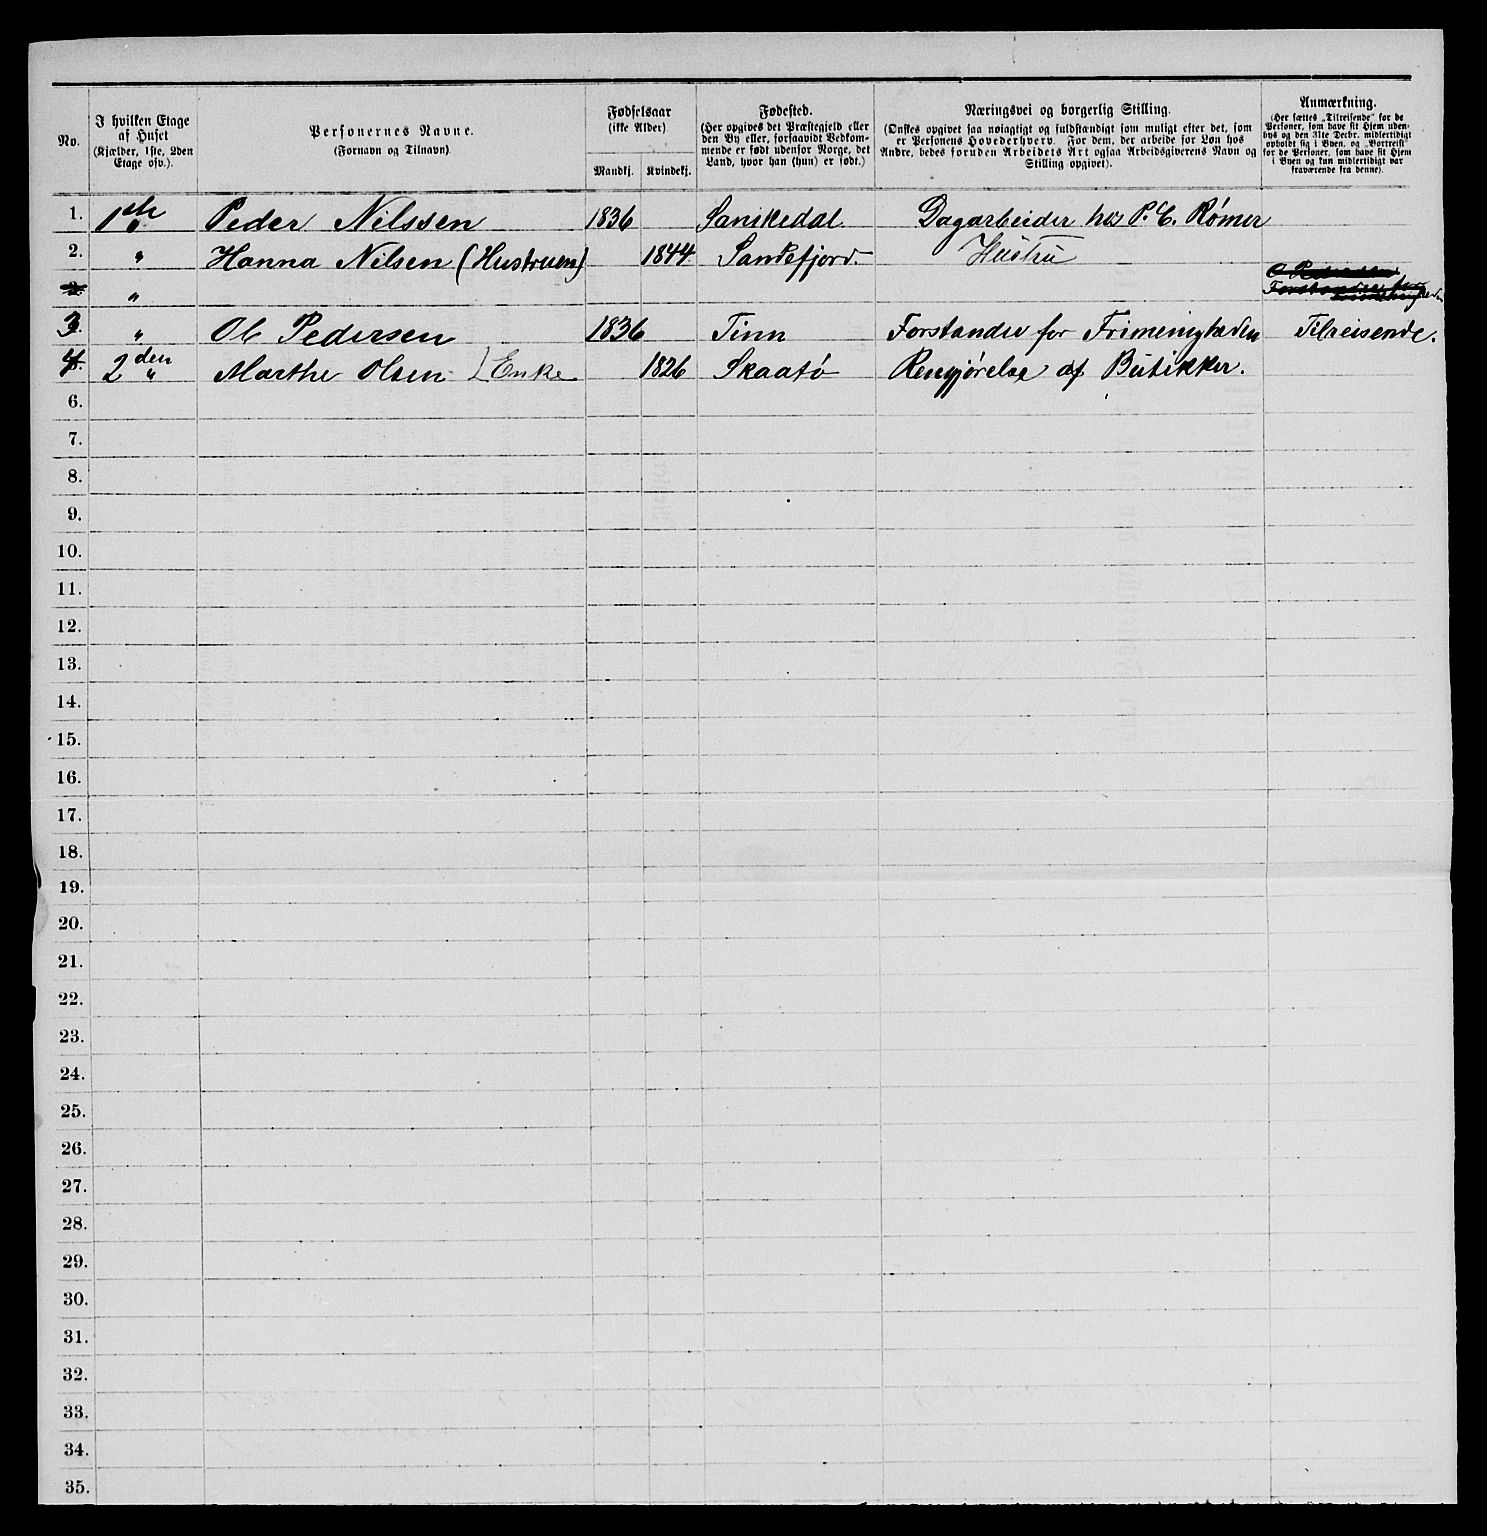 No.
I hvilken Etage af Huset (Kjælder, 1ste, 2den Etage osv.).
Personernes Navne. (Fornavn og Tilnavn).
Fødselsaar (ikke Alder).
Mandkj. Kvindekj.
Fødested. (Her opgives det Præstegjeld eller den By eller, forsaavidt Vedkommende er født udenfor Norge, det Land, hvor han (hun) er født.)
Næringsvei og borgerlig Stilling. (Ønskes opgivet saa nøiagtigt og fuldstændigt som muligt efter det, som er Personens Hovederhverv. For dem, der arbeide for Løn hos Andre, bedes foruden Arbeidets Art ogsaa Arbeidsgiverens Navn og Stilling opgivet).
Anmærkning. (Her sættes „Tilreisende" for de Personer, som have sit Hjem udenbys og den 31te Decbr. midlertidigt opholdt sig i Byen, og „Bortreist" for de Personer, som have sit Hjem i Byen og kun midlertidigt var fraværende fra denne).
1. 1ste Peder Nilssen 1836 Sanikedal Dagarbeider hos P. C. Rømer
2. " Hanna Nilsen (Hustruen) 1844 Sandefjord. Hustru
"
3 " Ole Pedersen 1836 Tinn Forstander for Frimenigheden Tilreisende.
4. 2den " Marthe Olsen Enke 1826 Skaatø Rengjørelse af Butikker.
6.
7.
8.
9.
10.
11.
12.
13.
14.
15.
16.
17.
18.
19.
20.
21.
22.
23.
24.
25.
26.
27.
28.
29.
30.
31.
32.
33.
34.
35.